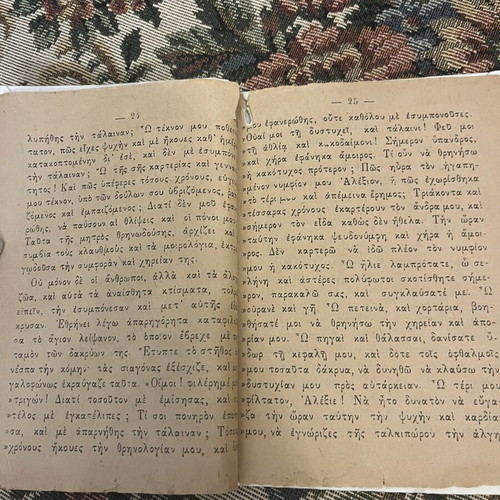 — 24 —
λυπήθης τὴν τάλαιναν; Ὦ τέκνον μου ποθει
τατον, πῶς εἶχες ψυχὴν καὶ μὲ ἤκουες καθ' ἡμέ
κατακοπτομένην δι' ἐσὲ, καὶ δὲν μὲ ἐσυμπόν
τὴν τάλαιναν; Ὢ τῆς σῆς καρτερίας καὶ γεννα
τητος! Καὶ πῶς ὑπέφερες τόσους χρόνους, εὐγε
μου τέκνον, ὑπὸ τῶν δούλων σου ὑβριζόμενος,
ζόμενος καὶ ἐμπαιζόμενος; Διατί δὲν μοῦ ἐφα
ρώθης, νὰ παύσουν αἱ θλίψεις καὶ οἱ πόνοι μου
Ταῦτα τῆς μητρὸς θρηνωδούσης, ἀρχίζει καὶ
τυμδία τοὺς κλαυθμοὺς καὶ τὰ μοιρολόγια, ἐκτρ
γωδοῦσα τὴν συμφορὰν καὶ χηρείαν της.
Οὐ μόνον δὲ οἱ ἄνθρωποι, ἀλλὰ καὶ τὰ ἄλ
ζῶα, καὶ αὐτὰ τὰ ἀναίσθητα κτίσματα, τολμ
εἰπεῖν, τὴν ἐσυμπόνεσαν καὶ μετ' αὐτῆς ἐδ
κρυσαν. Ἐθρήνει λέγω ἀπαρηγόρητα καταφιλο
σα τὸ ἅγιον λείψανον, τὸ ὁποῖον ἔβρεχε μὲ
ταμὸν τῶν δακρύων της. Ἔτυπτε τὸ στῆθος
νέσπα τὴν κόμην· τὰς σιαγόνας ἐξέσχιζε, καὶ
γαλοφώνως ἐκραύγαζε ταῦτα. «Οἴμοι! φιλέρημέ μ
»τριγών! Διατί τοσοῦτον μὲ ἐμίσησας, καὶ ε
»τέλος μὲ ἐγκατέλιπες; Τί σοι πονηρὸν ἐποί
»σα, καὶ μὲ ἀπαρνήθης τὴν τάλαιναν; Τόσο
»χρόνους ἤκουες τὴν θρηνολογίαν μου, καὶ
— 25 —
»μου ἐφανερώθης, οὔτε καθόλου μὲ ἐσυμπονοῦσες.
»Οὐαί μοι τῇ δυστυχεῖ, καὶ τάλαινι! Φεῦ μοι
»τῇ ἀθλίᾳ καὶ κακοδαίμονι! Σήμερον ὕπανδρος,
»καὶ χήρα ἐφάνηκα ἄμοιρος. Τί οὖν νὰ θρηνήσω
»ἡ κακότυχος πρότερον; Πῶς ηὗρα τὸν ἠγαπη-
»μένον νυμφίον μου Ἀλέξιον, ἢ πῶς ἐχωρίσθηκα
»τὸ ταίρι μου καὶ ἀπέμεινα ἔρημος; Τριάκοντα καὶ
»τέσσαρας χρόνους ἐκαρτέρουν τὸν ἄνδρα μου, καὶ
»σήμερον τὸν εἶδα καθὼς δὲν ἤθελα. Τὴν ὥραν
»ταύτην ἐφάνηκα ψευδονύμφη καὶ χήρα ἡ ἄμοι-
»ρος. Δὲν καρτερῶ νὰ ἰδῶ πλέον τὸν νυμφίον
»μου ἡ κακότυχος. Ὦ ἥλιε λαμπρότατε, ὦ σε-
»λήνη καὶ ἀστέρες πολύφωτοι σκοτίσθητε σήμε-
»ρον, παρακαλῶ σας, καὶ συγκλαύσατέ με. Ὦ
»οὐρανὲ καὶ γῆ Ὦ πετεινὰ, καὶ χορτάρια, βοη-
»θήσατέ μοι νὰ θρηνήσω τὴν χηρείαν καὶ ἀπο-
»ρίαν μου. Ὦ πηγαὶ καὶ θάλασσαι, δανίσατε ὕ-
»δωρ τῇ κεφαλῇ μου, καὶ δότε τοῖς ὀφθαλμοῖς
»μου τοσαῦτα δάκρυα, νὰ δυνηθῶ νὰ κλαύσω τὴν
»δυστυχίαν μου πρὸς αὐτάρκειαν. Ὦ ταίρι μου
»φίλτατον, Ἀλέξιε! Νὰ ἦτο δυνατὸν νὰ εὔγα-
»ζα τὴν ὥραν ταύτην τὴν ψυχὴν καὶ καρδίαν
»μου, νὰ ἐγνώριζες τῆς ταλαιπώρου τὴν ἄλγη